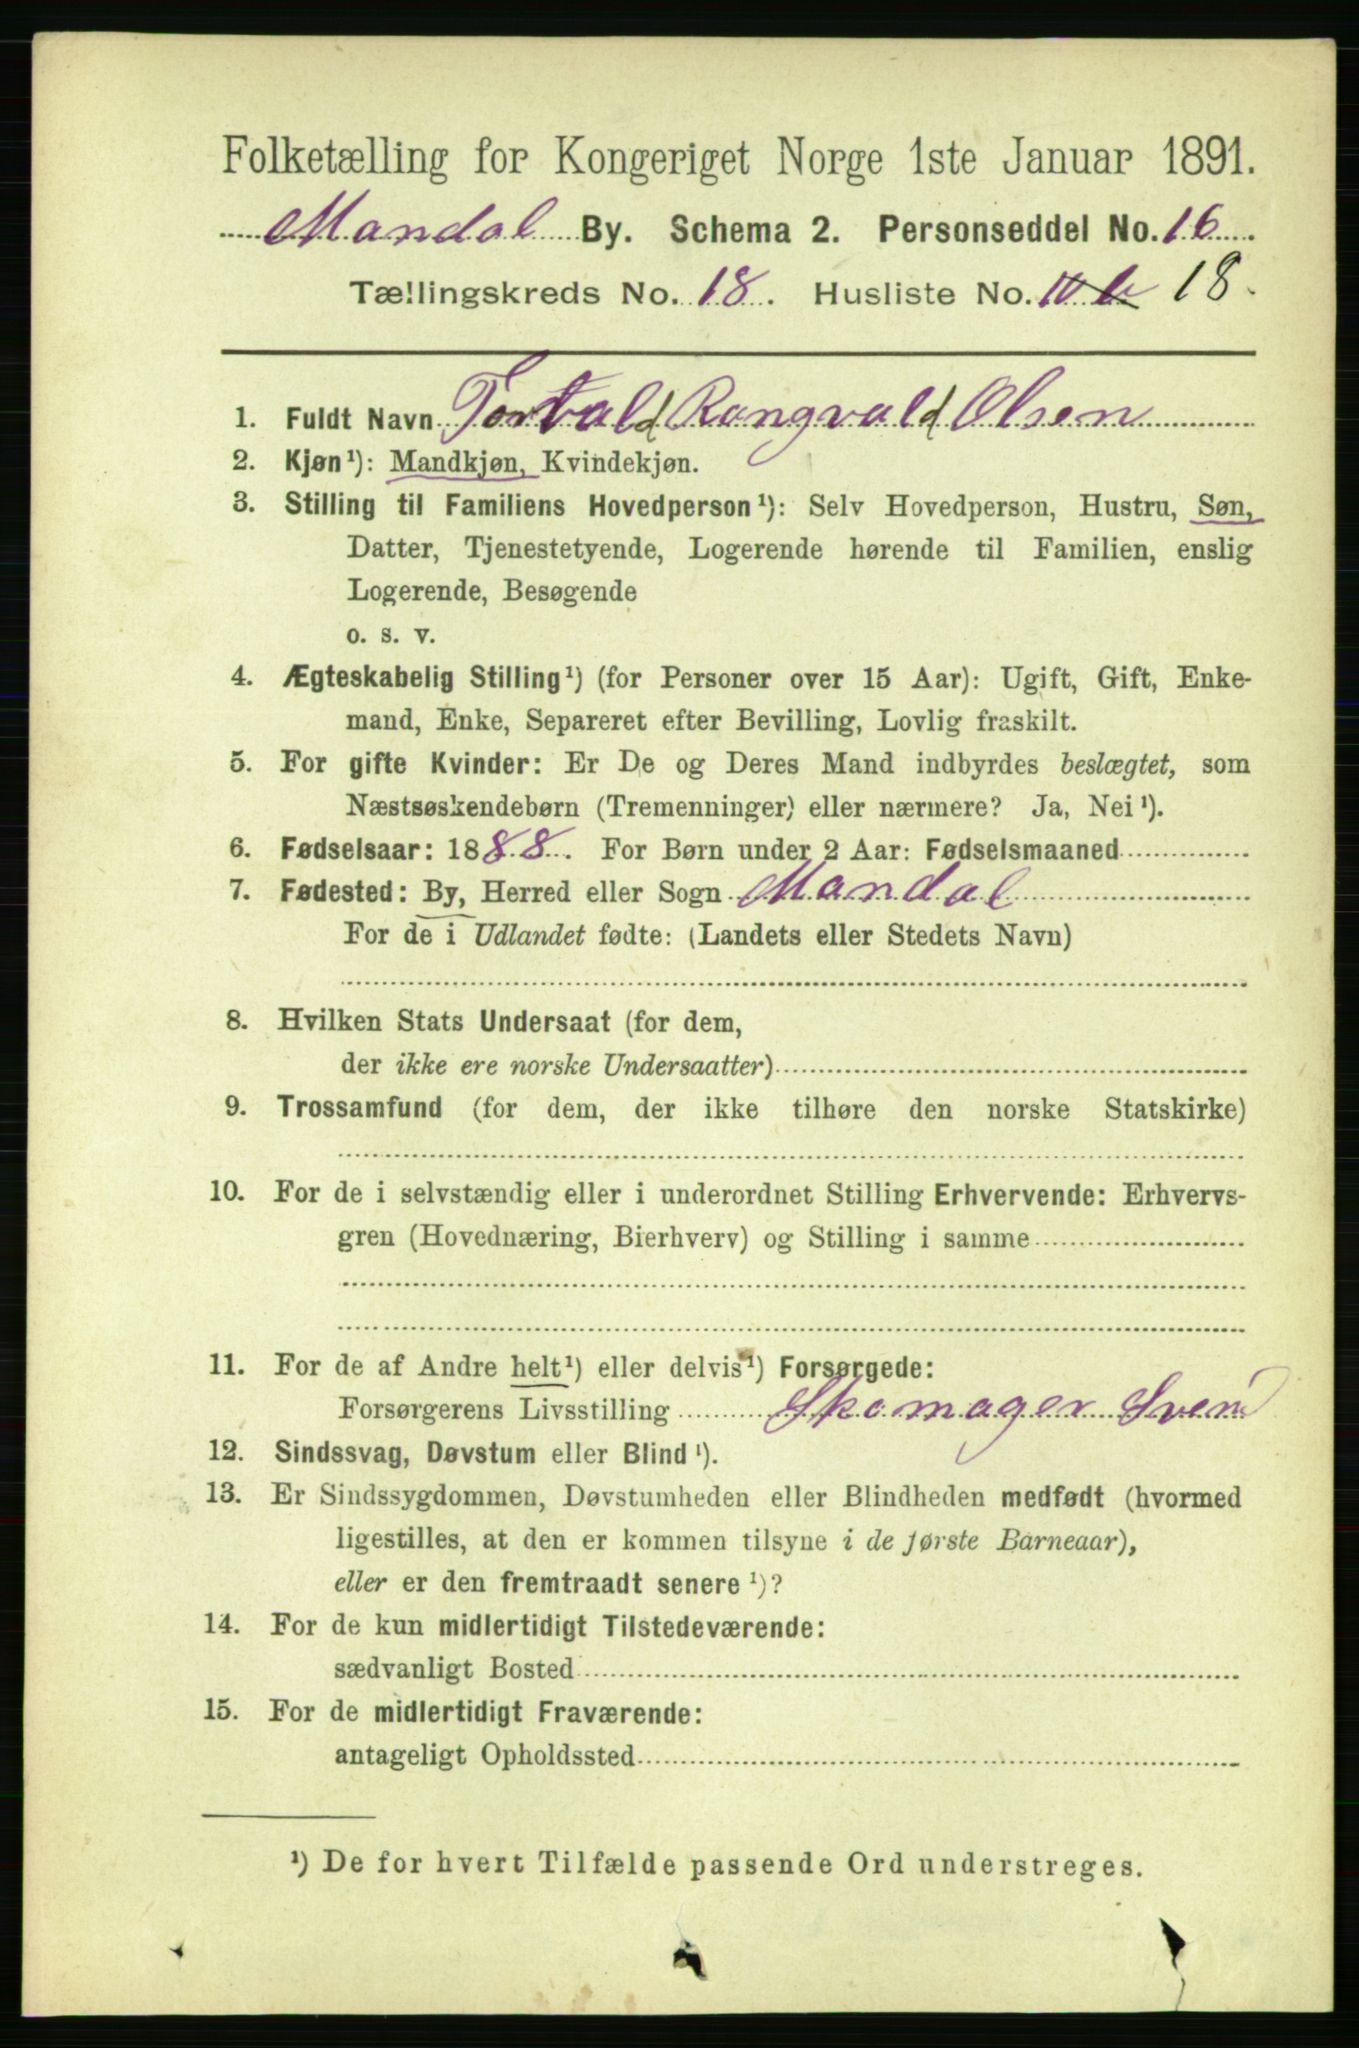 Folketælling for Kongeriget Norge 1ste Januar 1891.
Mandal By. Schema 2. Personseddel No. 16
Tællingskreds No. 18. Husliste No. 18.
1. Fuldt Navn Torvald Rangvald Olsen
2. Kjøn¹): Mandkjøn, Kvindekjøn.
3. Stilling til Familiens Hovedperson¹): Selv Hovedperson, Hustru, Søn,
Datter, Tjenestetyende, Logerende hørende til Familien, enslig
Logerende, Besøgende
o. s. v.
4. Ægteskabelig Stilling¹) (for Personer over 15 Aar): Ugift, Gift, Enke-
mand, Enke, Separeret efter Bevilling, Lovlig fraskilt.
5. For gifte Kvinder: Er De og Deres Mand indbyrdes beslægtet, som
Næstsøskendebørn (Tremenninger) eller nærmere? Ja, Nei¹).
6. Fødselsaar: 1888. For Børn under 2 Aar: Fødselsmaaned
7. Fødested: By, Herred eller Sogn Mandal
For de i Udlandet fødte: (Landets eller Stedets Navn)
8. Hvilken Stats Undersaat (for dem,
der ikke ere norske Undersaatter)
9. Trossamfund (for dem, der ikke tilhøre den norske Statskirke)
10. For de i selvstændig eller i underordnet Stilling Erhvervende: Erhvervs-
gren (Hovednæring, Bierhverv) og Stilling i samme
11. For de af Andre helt¹) eller delvis¹) Forsørgede:
Forsørgerens Livsstilling Skomager Svend
12. Sindssvag, Døvstum eller Blind¹).
13. Er Sindssygdommen, Døvstumheden eller Blindheden medfødt (hvormed
ligestilles, at den er kommen tilsyne i de første Barneaar),
eller er den fremtraadt senere¹)?
14. For de kun midlertidigt Tilstedeværende:
sædvanligt Bosted
15. For de midlertidigt Fraværende:
antageligt Opholdssted
¹) De for hvert Tilfælde passende Ord understreges.